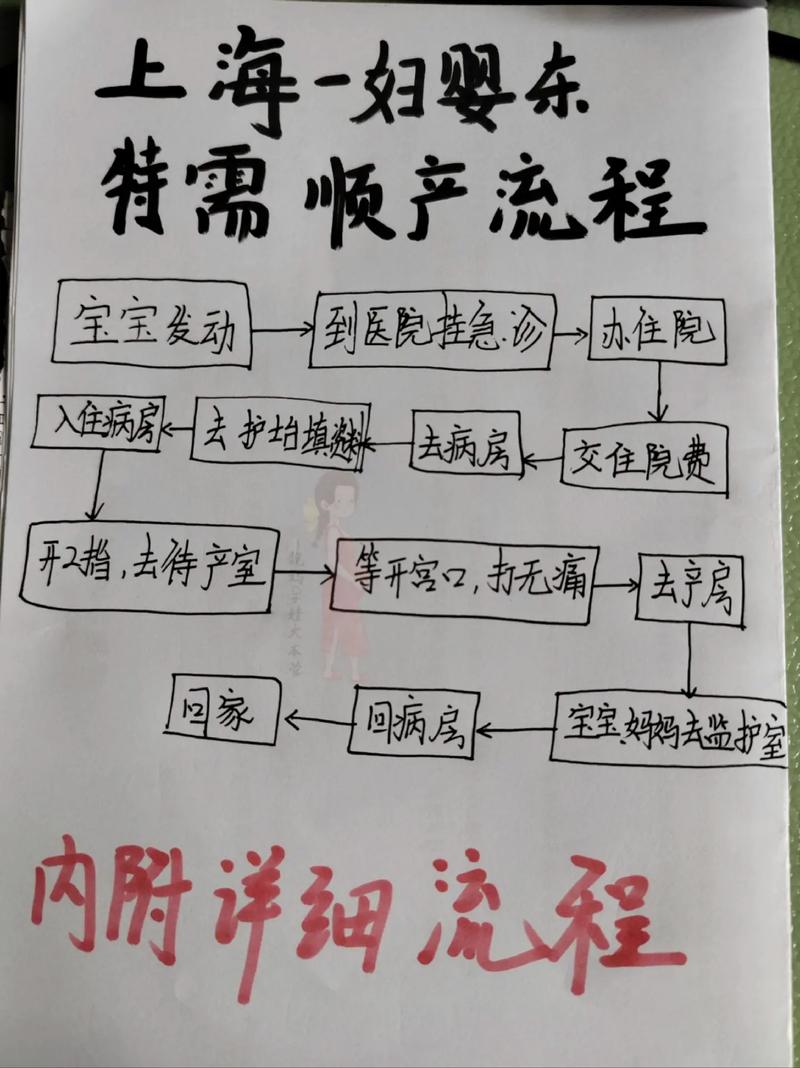 上海一妇婴东
特需 顺产流程
宝宝发动
到医院挂急诊
办住院
交住院费
去病房
去护士台填资料
入住病房
开2指,去待产室
等开宫口,打无痛
去产房
宝宝,妈妈去监护室
回病房
回家
内附详细流程